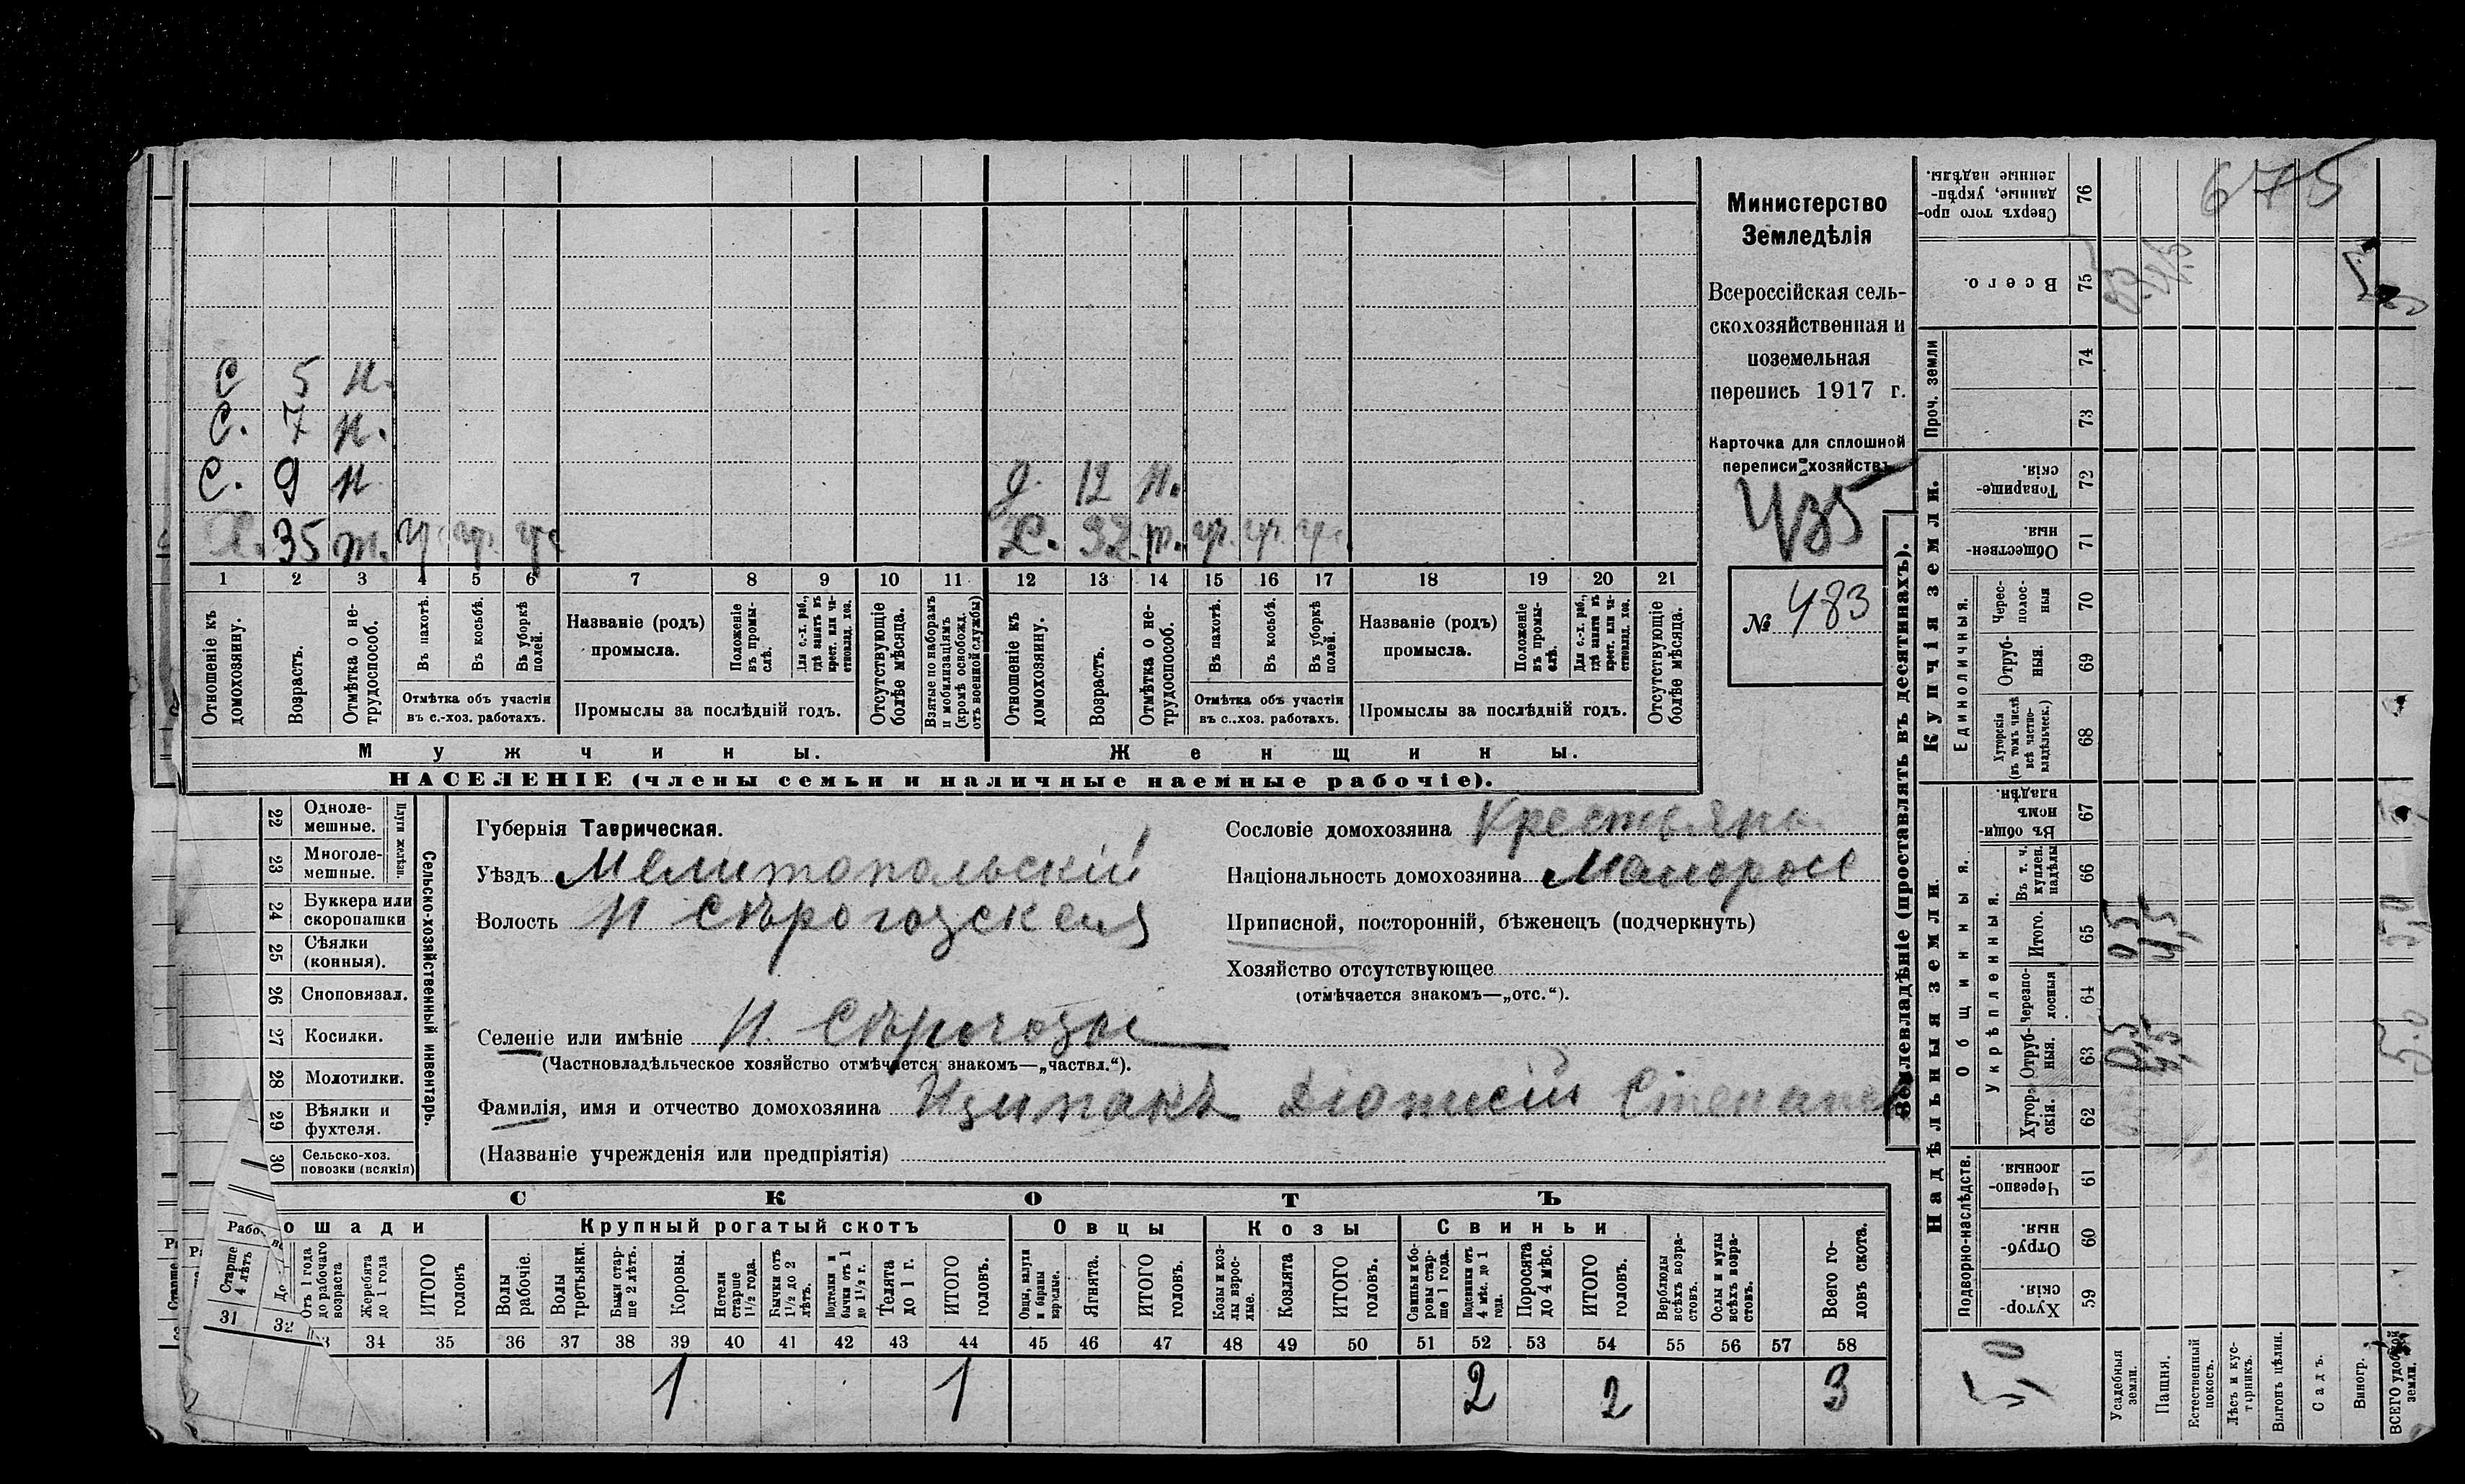 С 5 н.
С. 7 н.
С. 9 н. д. 12 н.
Х. 35 т. Х. 32 т.
1 2 3 4 5 6 7 8 9 10 11 12 13 14 15 16 17 18 19 20 21
Отношеніе къ домохозяину.
Возрастъ.
Отмѣтка о не-трудоспособ.
Въ пахотѣ.
Въ косьбѣ.
Въ уборкѣ полей.
Отмѣтка объ участіи въ с.-хоз. работахъ.
Названіе (родъ) промысла.
Положеніе въ промы-слѣ.
Для с.-х. раб., гдѣ занятъ въ крест. или ча-стновлад. хоз.
Промыслы за послѣдній годъ.
Отсутствующіе болѣе мѣсяца.
Взятые по наборамъ и мобилизаціямъ (кромѣ освобожд. отъ военной службы)
Отношеніе къ домохозяину.
Возрастъ.
Отмѣтка о не-трудоспособ.
Въ пахотѣ.
Въ косьбѣ.
Въ уборкѣ полей.
Отмѣтка объ участіи въ с.-хоз. работахъ.
Названіе (родъ) промысла.
Положеніе въ промы-слѣ.
Для с.-х. раб., гдѣ занята въ крест. или ча-стновлад. хоз.
Промыслы за послѣдній годъ.
Отсутствующіе болѣе мѣсяца.
Мужчины. Женщины.
НАСЕЛЕНІЕ (члены семьи и наличные наемные рабочіе).
Министерство
Земледѣлія
Всероссійская сель-
скохозяйственная и
поземельная
перепись 1917 г.
Карточка для сплошной
переписи хозяйствъ
435
№ 483
22 Одноле-мешные.
23 Многоле-мешные.
Плуги желѣзн.
24 Буккера или скоропашки
25 Сѣялки (конныя).
26 Сноповязал.
27 Косилки.
28 Молотилки.
29 Вѣялки и фухтеля.
30 Сельско-хоз. повозки (всякія)
Сельско-хозяйственный инвентарь.
Губернія Таврическая.
Уѣздъ Мелитопольскій
Волость Н Сѣрогозская
Селеніе или имѣніе Н. Сѣрогозы
(Частновладѣльческое хозяйство отмѣчается знакомъ—„частвл.“).
Фамилія, имя и отчество домохозяина Діонисій Степан
(Названіе учрежденія или предпріятія)
Сословіе домохозяина Крестьянъ
Національность домохозяина Малоросс
Приписной, посторонній, бѣженецъ (подчеркнуть)
Хозяйство отсутствующее
(отмѣчается знакомъ—„отс.“).
СКОТЪ
ошади Крупный рогатый скотъ Овцы Козы Свиньи
Рабо-
Старше 4 лѣтъ
Отъ 1 года до рабочаго возраста
Жеребята до 1 года
ИТОГО головъ
Волы рабочіе.
Волы третьяки.
Быки стар-ше 2 лѣтъ.
Коровы.
Нетели старше 1½ года.
Бычки отъ 1½ до 2 лѣтъ.
Подтелки и бычки отъ 1 до 1½ г.
Телята до 1 г.
ИТОГО головъ.
Овцы, валухи и бараны взрослые.
Ягнята.
ИТОГО головъ.
Козы и коз-лы взрос-лые.
Козлята
ИТОГО головъ.
Свиньи и бо-ровы стар-ше 1 года.
Подсвинки отъ 4 мѣс. до 1 года.
Поросята до 4 мѣс.
ИТОГО головъ.
Верблюды всѣхъ возра-стовъ.
Ослы и мулы всѣхъ возра-стовъ.
Всего го-ловъ скота.
31 32 3 34 35 36 37 38 39 40 41 42 43 44 45 46 47 48 49 50 51 52 53 54 55 56 57 58
1 1 2 2 3
Землевладѣніе (проставлять въ десятинахъ).
Сверхъ того про-данные, укрѣп-ленные надѣлы. 76 675
Всего. 75
Проч. земли 74
73
Купчія земли.
Товарище-скія. 72
Обществен-ныя. 71
Единоличныя.
Черес-полос-ныя 70
Отруб-ныя. 69
Хуторскія (въ томъ числѣ всѣ частно-владѣльческ.) 68
Надѣльныя земли.
Общинныя.
Въ общин-номъ владѣн. 67
Укрѣпленныя.
Въ т. ч. куплен. надѣлы 66
Итого. 65 0,5 4,5
Черезпо-лосныя 64
Отруб-ныя. 63 0,5 4,5 5.0
Хутор-скія. 62
Подворно-наслѣдств.
Черезпо-лосныя. 61
Отруб-ныя. 60
Хутор-скія. 59
5,0
Усадебныя земли.
Пашня.
Естественный покосъ.
Лѣсъ и кус-тарникъ.
Выгонъ цѣлин.
Садъ.
Виногр.
ВСЕГО удобной земли.